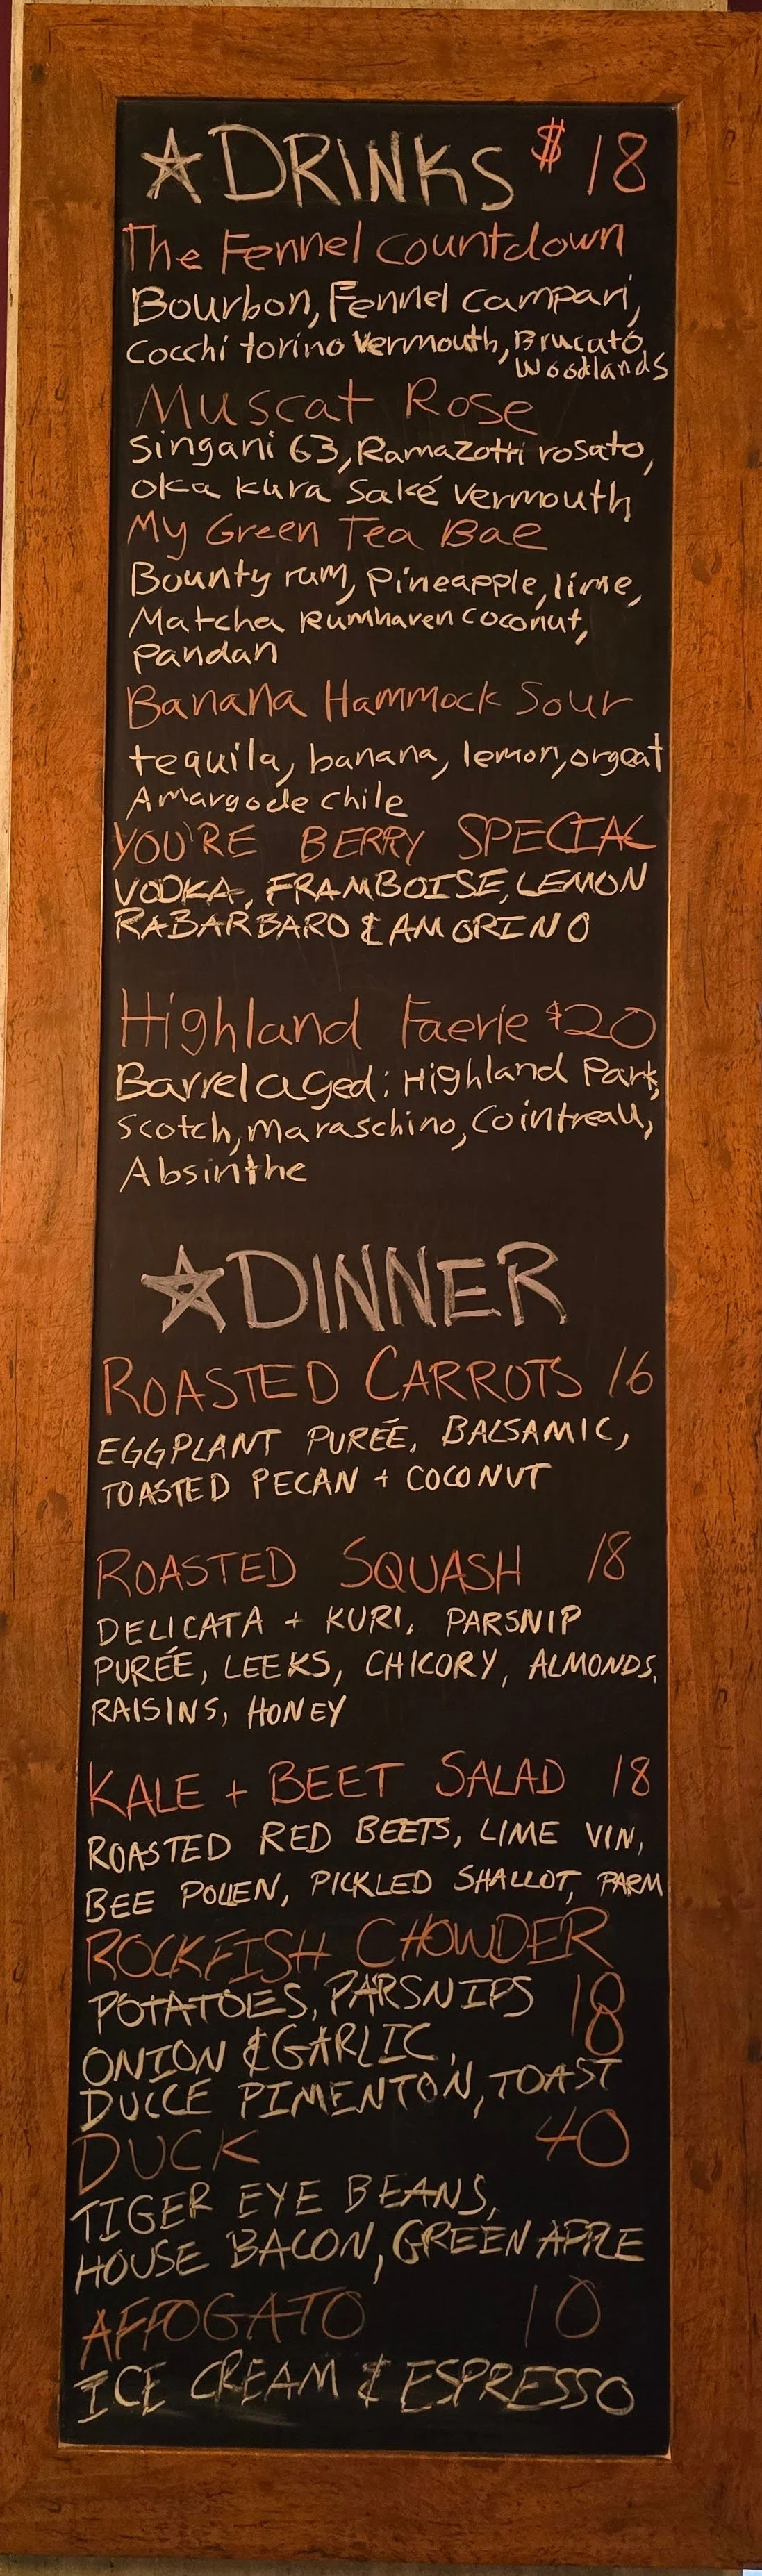 ☆DRINKS $18
The Fennel Countdown
Bourbon, Fennel Campari,
Cocchi torino Vermouth, Brucato
Woodlands
Muscat Rose
Singani 63, Ramazotti rosato,
Oka Kura Saké Vermouth
My Green Tea Bae
Bounty rum, Pineapple, lime,
Matcha Rumhaven coconut,
Pandan
Banana Hammock Sour
tequila, banana, lemon, orgeat
Amargo de chile
YOU'RE BERRY SPECIAL
VODKA, FRAMBOISE, LEMON
RABARBARO & AMORINO
Highland Faerie $20
Barrel aged: Highland Park,
Scotch, maraschino, Cointreau,
Absinthe
☆DINNER
ROASTED CARROTS 16
EGGPLANT PURÉE, BALSAMIC,
TOASTED PECAN + COCONUT
ROASTED SQUASH 18
DELICATA + KURI, PARSNIP
PURÉE, LEEKS, CHICORY, ALMONDS,
RAISINS, HONEY
KALE + BEET SALAD 18
ROASTED RED BEETS, LIME VIN,
BEE POLLEN, PICKLED SHALLOT, PARM
ROCKFISH CHOWDER
POTATOES, PARSNIPS 18
ONION & GARLIC,
DULCE PIMENTON, TOAST
DUCK 40
TIGER EYE BEANS,
HOUSE BACON, GREEN APPLE
AFFOGATO 10
ICE CREAM & ESPRESSO